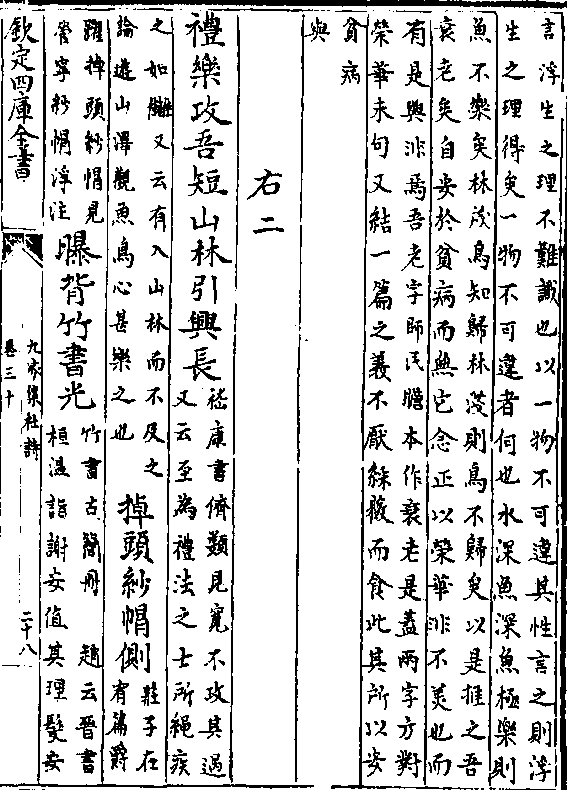 言浮生之理不難識也以一物不可違其性言之則浮
生之理得矣一物不可違者何也水深魚深魚極樂則
魚不樂矣林茂鳥知歸林淺則鳥不歸矣以是推之吾
衰老矣自安於貧病而無它念正以榮華非不美也而
有是與非焉吾老字師民瞻本作衰老是蓋兩字方對
榮華末句又結一篇之義不厭絲薇而食此其所以安
貧病
與
右二
禮樂攻吾短山林引興長
嵇康書儕類見寛不攻其過
又云至為禮法之士所繩疾
之如讎又云有入山林而不反之
論遊山澤觀魚鳥心甚樂之也
掉頭紗帽側
莊子在
有篇爵
躍掉頭紗帽見
管寧紗帽浮注
曝背竹書光
竹書古簡冊 趙云晉書
桓温詣謝安值其理髮安
欽定四庫全書
卷三十
九家集註杜詩
二十八